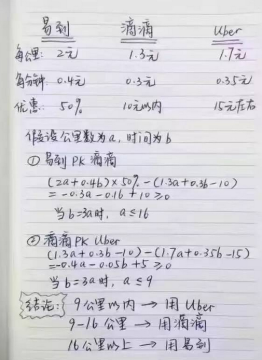 易到 滴滴 Uber
每公里: 2元 1.3元 1.7元
每分钟: 0.4元 0.3元 0.35元
优惠: 50% 10元以内 15元左右
假设公里数为a, 时间为b
① 易到 PK 滴滴
(2a+0.4b)×50%-(1.3a+0.3b-10)
=-0.3a-0.1b+10≥0
当b=3a时, a≤16
② 滴滴 PK Uber
(1.3a+0.3b-10)-(1.7a+0.35b-15)
=-0.4a-0.05b+5≥0
当b=3a时, a≤9
结论: 9公里以内→用Uber
9-16公里→用滴滴
16公里以上→用易到